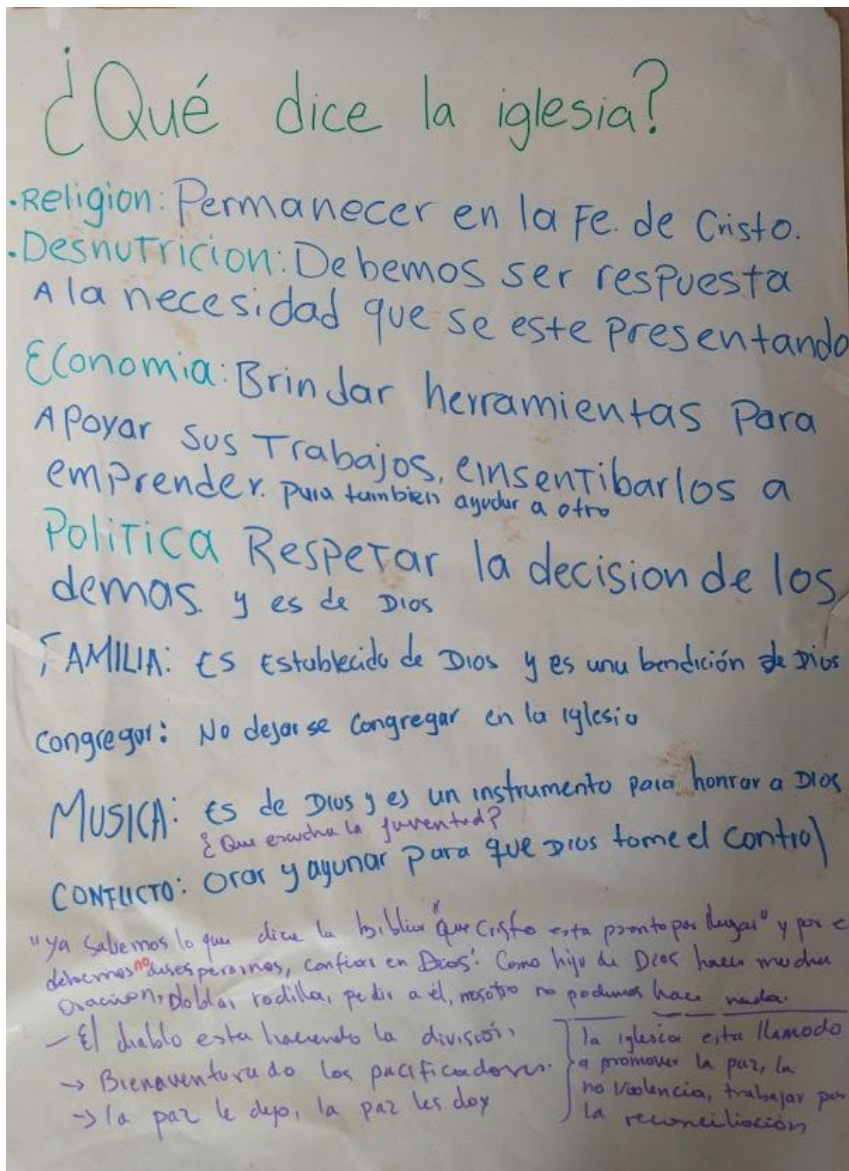 ¿Qué dice la iglesia?
•Religion: Permanecer en la Fe. de Cristo.
•Desnutricion: Debemos ser respuesta
A la necesidad que se este presentando
Economia: Brindar herramientas Para
APoyar sus Trabajos, einsentibarlos a
emprender. para tambien ayudar a otro
Politica Respetar la decision de los
demas. y es de Dios
FAMILIA: Es Establecido de Dios y es una bendición de Dios
Congregar: No dejarse Congregar en la iglesia
MUSICA: es de Dios y es un instrumento para honrar a Dios
¿Que escucha la juventud?
CONFLICTO: Orar y ayunar para que Dios tome el control
"ya sabemos lo que dice la biblia "que Cristo esta pronto por llegar" y por e
debemos no desesperarnos, confiar en Dios". Como hijo de Dios hacer mucha
oracion, doblar rodilla, pedir a él, nosotro no podemos hace nada.
- El diablo esta haciendo la división.
→ Bienaventurado los pacificadores.
→ la paz le dejo, la paz les doy
la iglesia esta llamado
a promover la paz, la
no violencia, trabajar por
la reconciliación